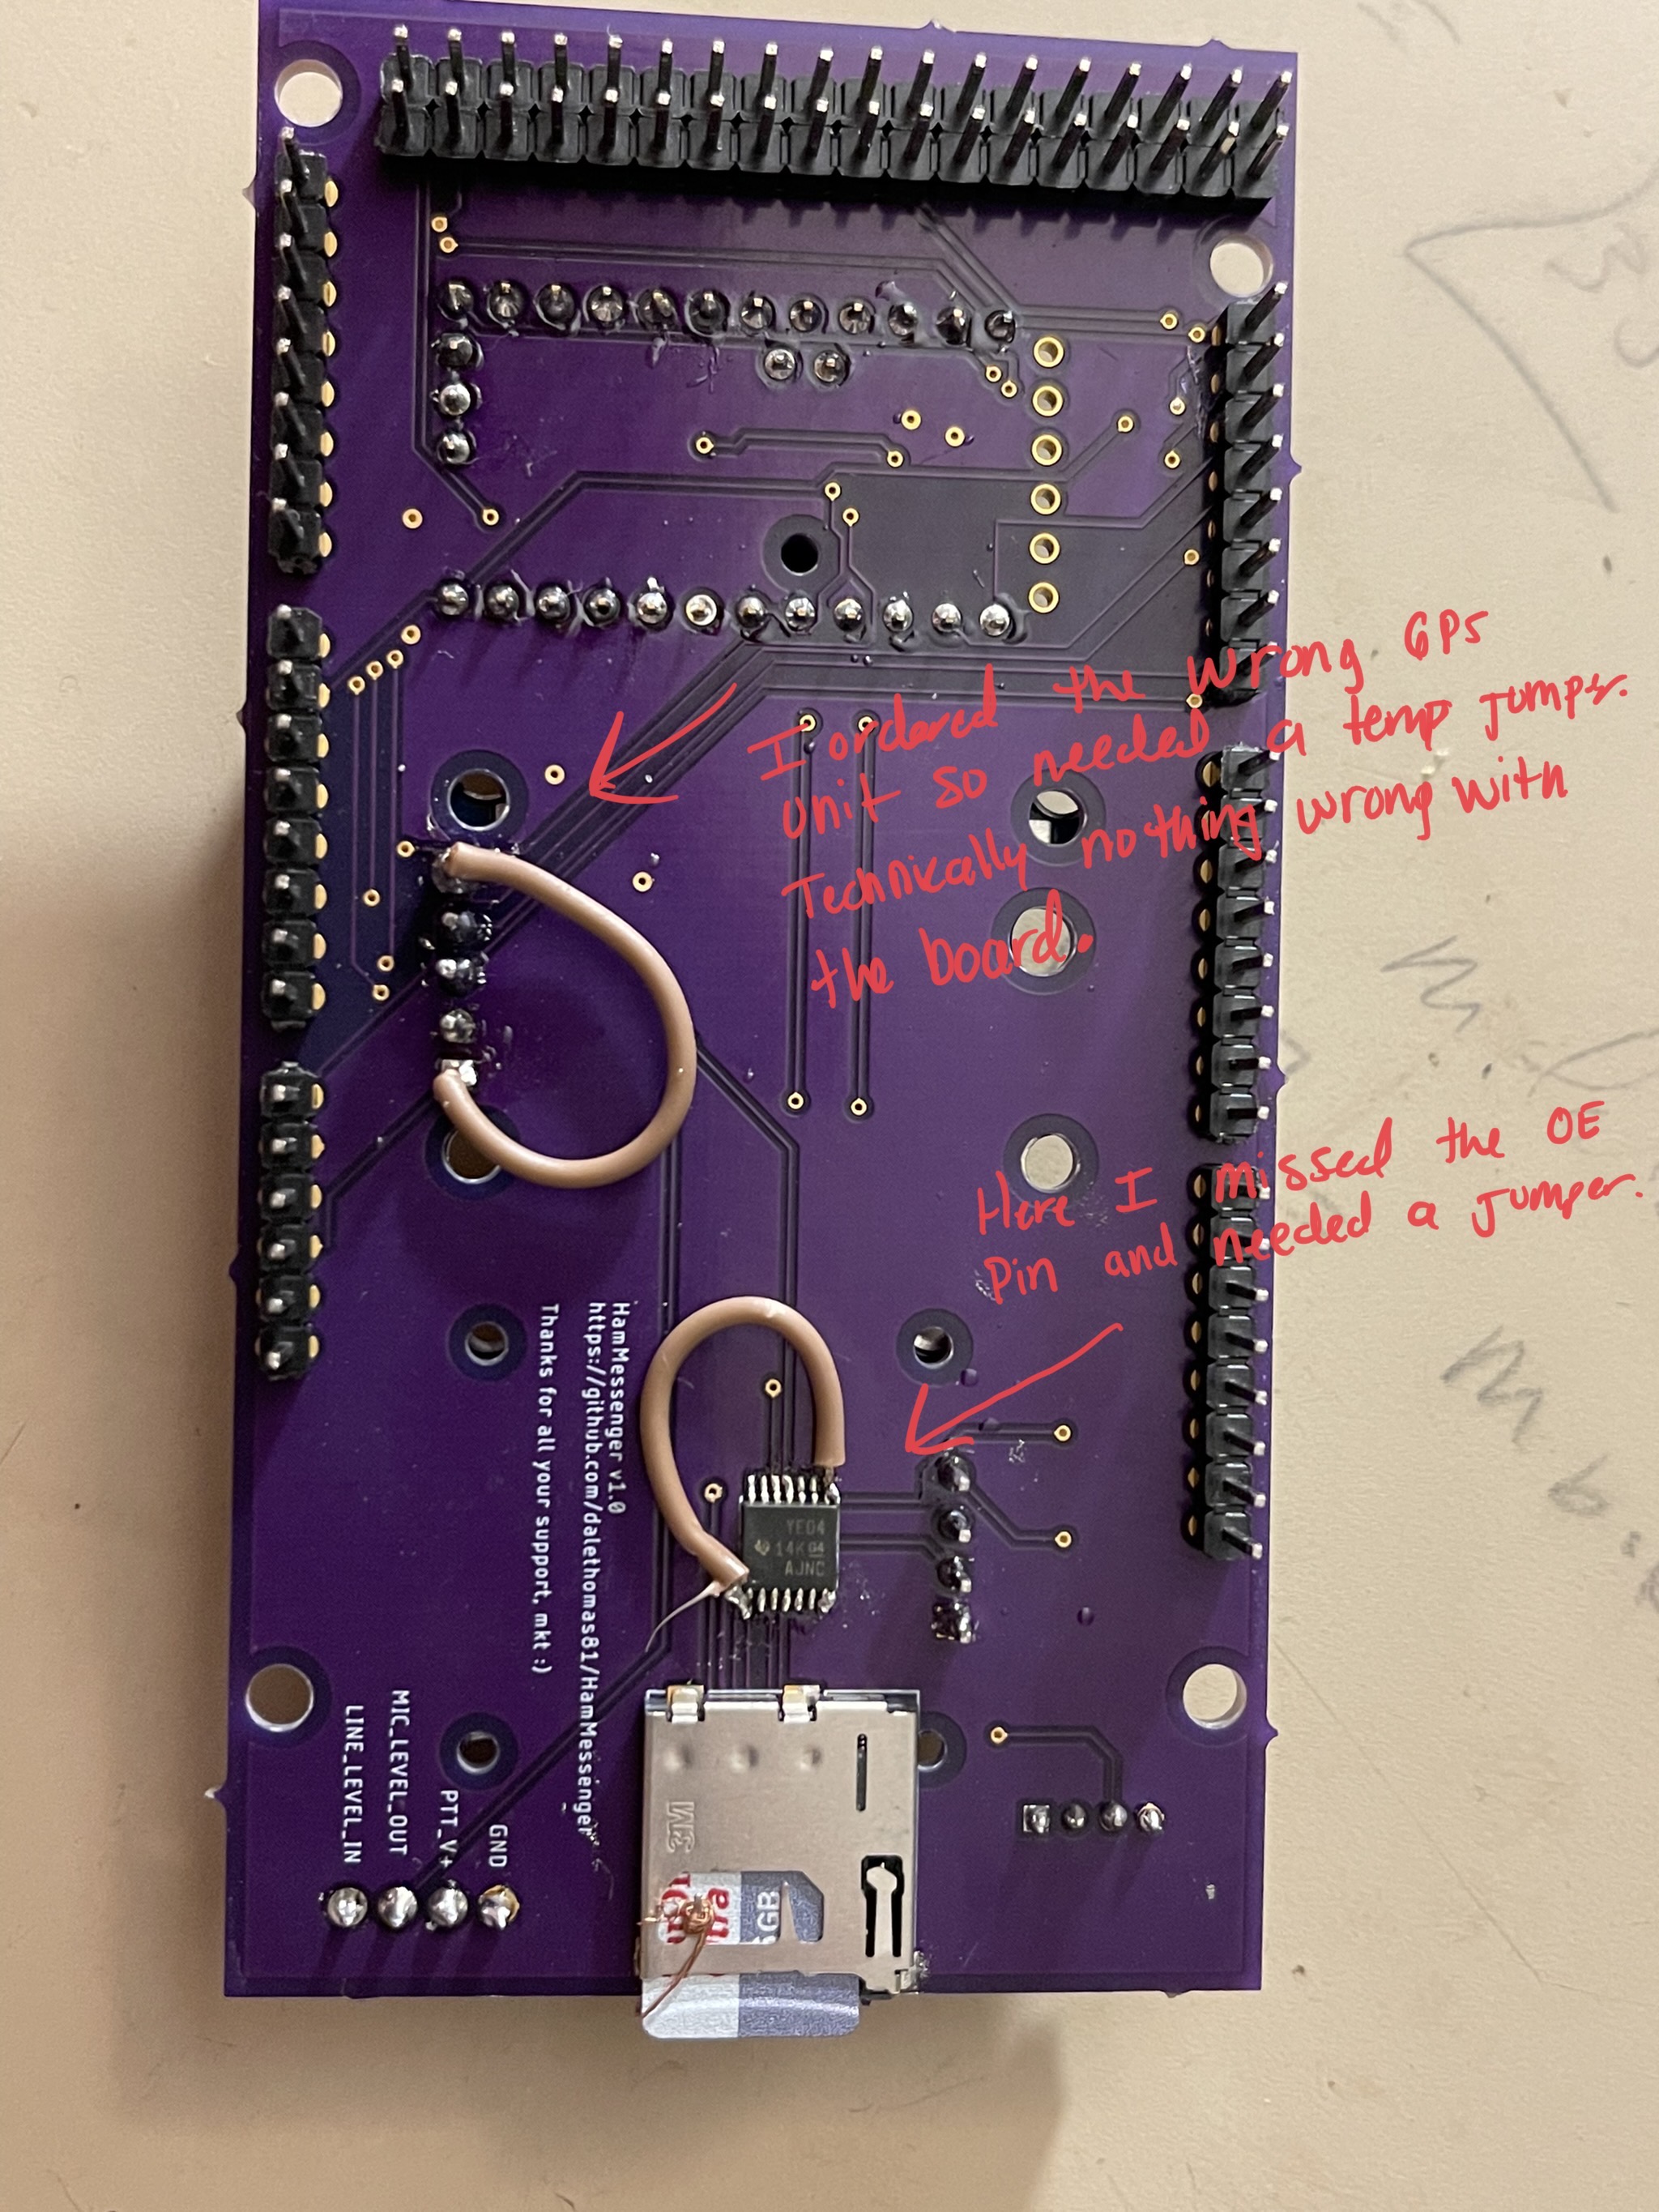 I ordered the wrong GPS
unit so needed a temp jumper.
Technically nothing wrong with
the board.
Here I missed the OE
Pin and needed a jumper.
HamMessenger v1.0
https://github.com/dalethomas81/HamMessenger
Thanks for all your support, mkt :)
YE04
14K G4
AJNC
LINE_LEVEL_IN
MIC_LEVEL_OUT
PTT_V+
GND
GB